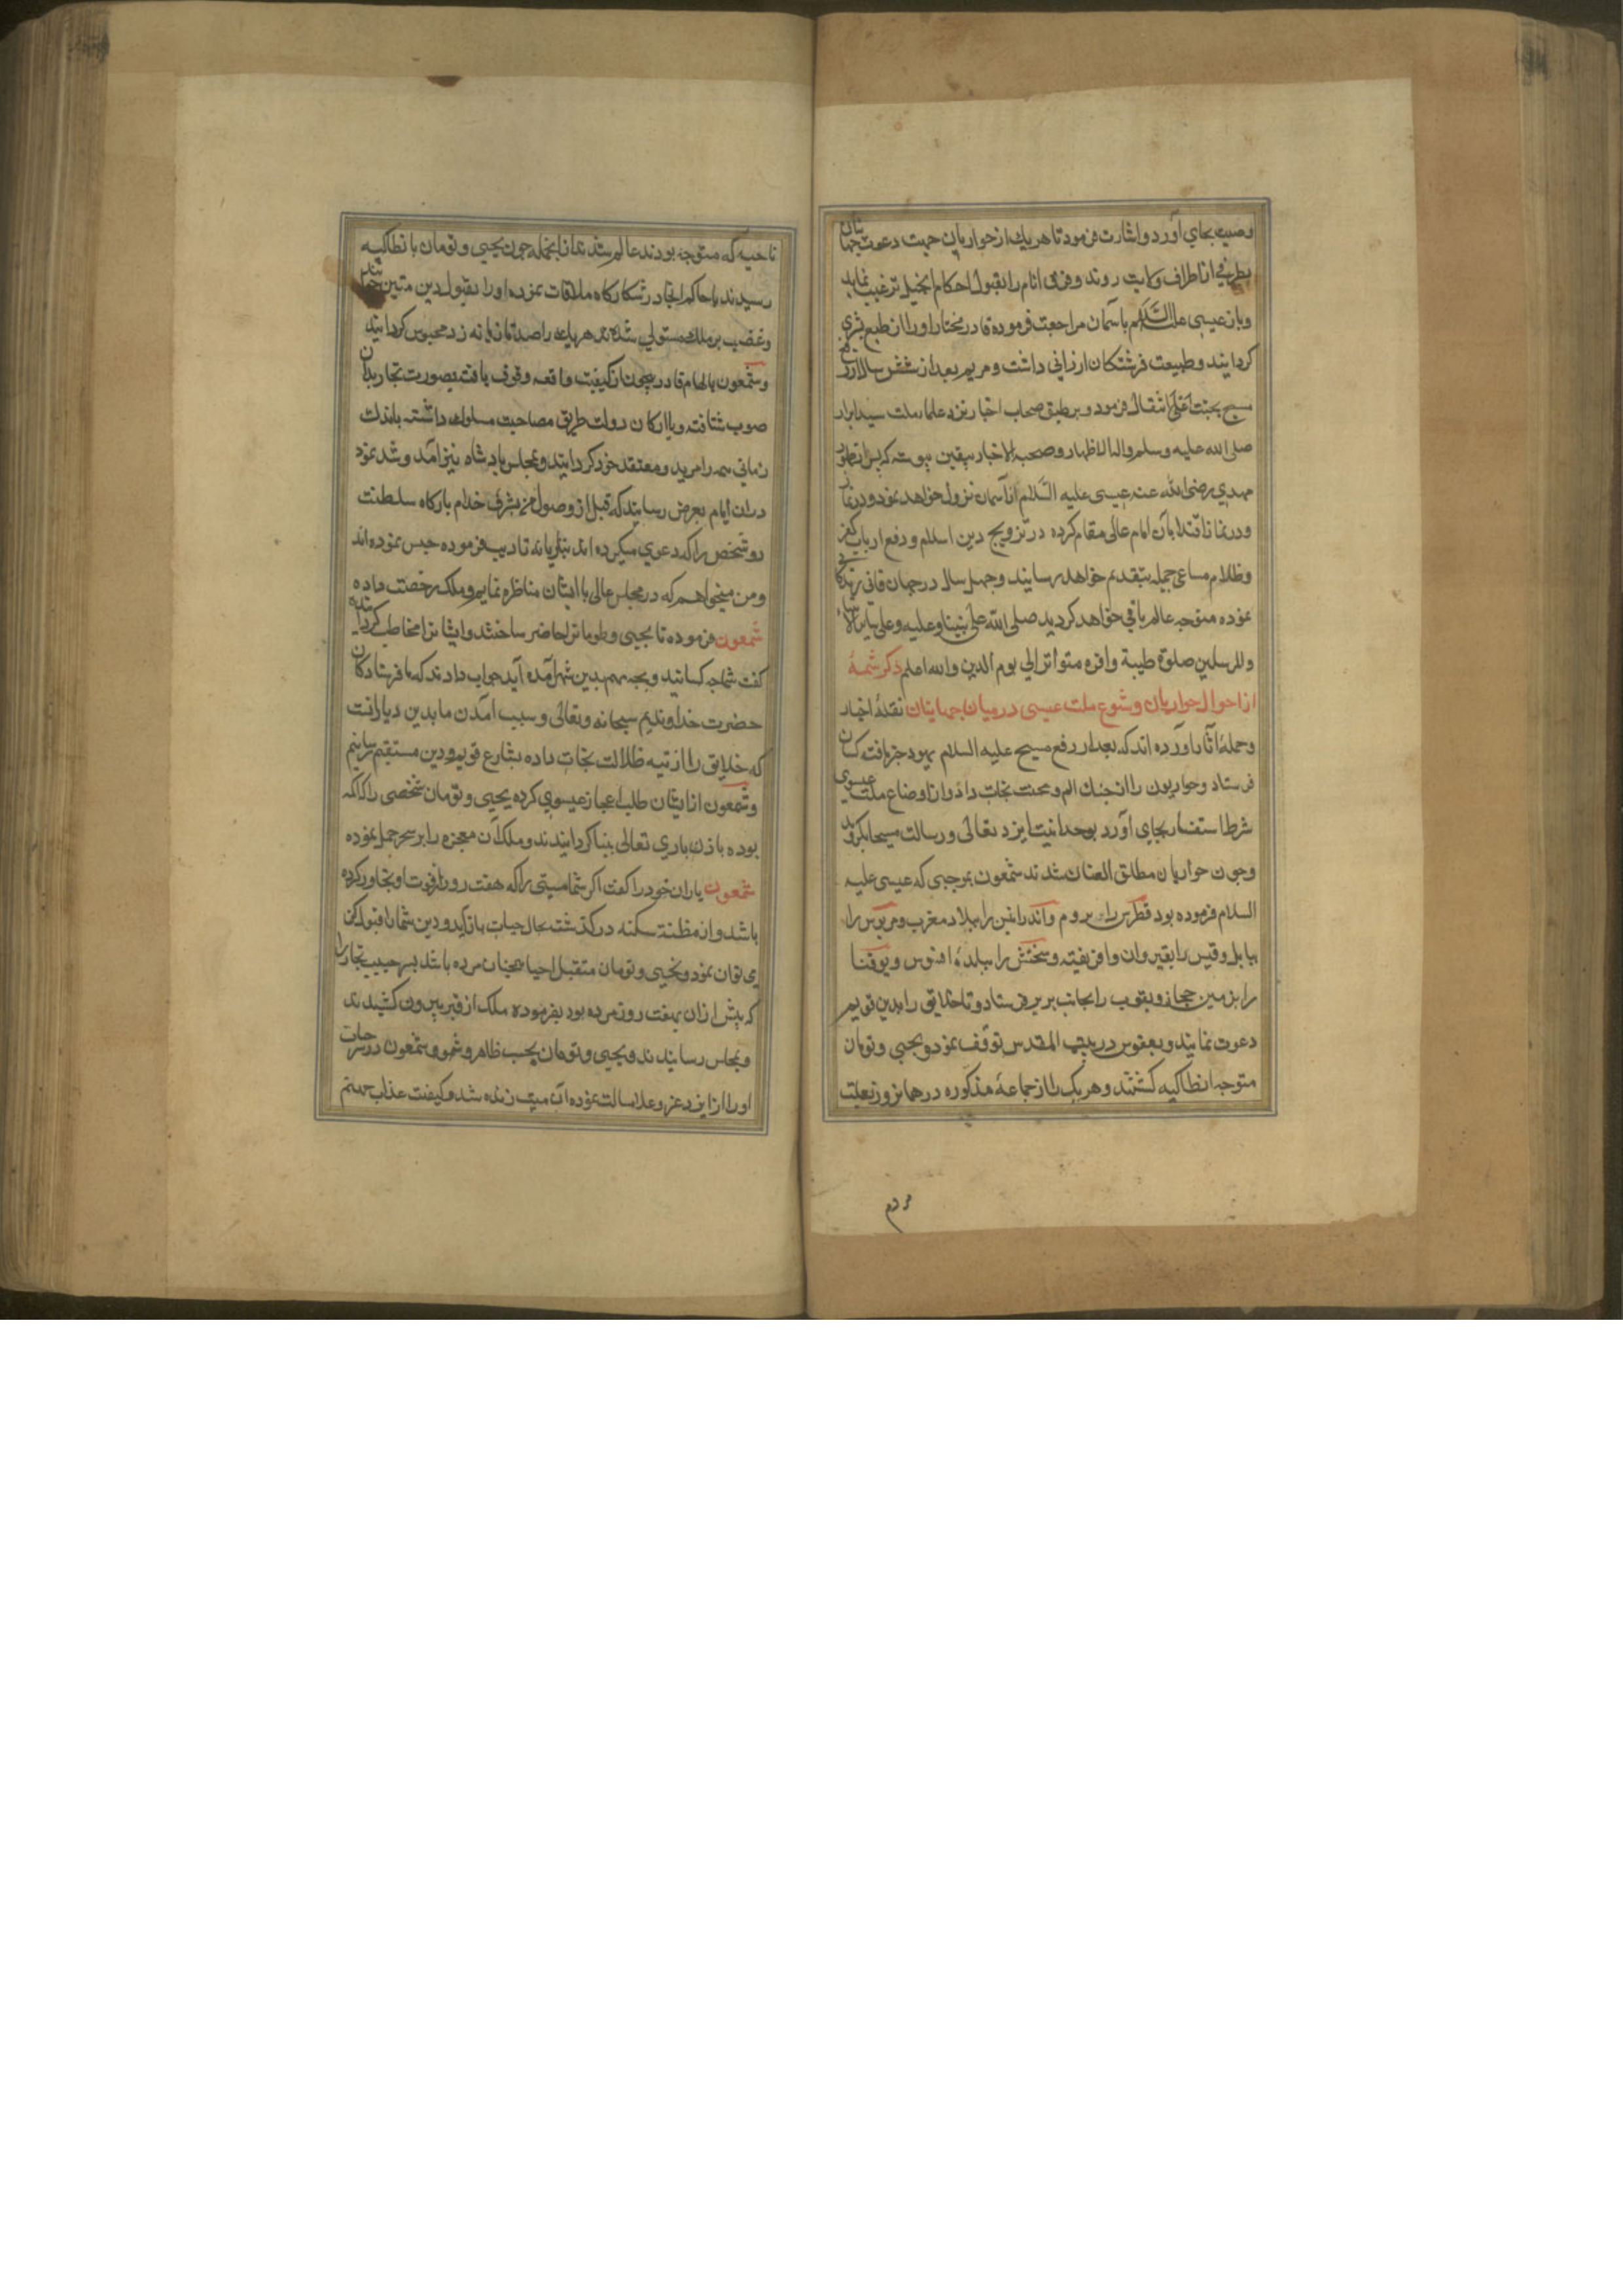 وصیت بجای آورد و اشارت فرمود تا هریک از حواریان جهت دعوت جهانیان
بطرفی از اطراف ولایت روند و فرق انام را بقبول احکام انجیل ترغیب نمایند
و باز عیسی علیه السلام باسمان مراجعت فرموده قادر مختار او را از طبع بشری
کردانید و طبیعت فرشتکان ارزانی داشت و مریم بعد از شش سال از رفع
مسیح بجنت اعلی انتقال فرمود و بر طبق صحاب اخبار نزد علماء ملت سید ابرار
صلی الله علیه وسلم واله الاظهار وصحبه الاخیار بیقین پیوسته که پس از ظهور
مهدی رضی الله عنه عیسی علیه السلام از آسمان نزول خواهد نمود و در نماز
و در نماز اقتدا بآن امام عالی مقام کرده در ترویج دین اسلام و دفع ارباب کفر
و ظلام مساعی جمیله بتقدیم خواهد رسانید و چهل سال در جهان فانی زندکانی
نموده متوجه عالم باقی خواهد کردید صلی الله علی نبینا وعلیه وعلی سایر الانبیاء
والمرسلین صلوة طیبة وافره متواتر الی یوم الدین والله اعلم ذکر شمهٔ
از احوال حواریان و شیوع ملت عیسی در میان جهانیان نقلهٔ اخبار
و حملهٔ آثار آورده اند که بعد از رفع مسیح علیه السلام یهود خبر یافت کسان
فرستاد و حواریون را از چنک الم و محنت نجات داد و از اوضاع ملت عیسوی
شرط استفسار بجای آورد بوحدانیت ایزد تعالی و رسالت مسیحا بکروید
و چون حواریان مطلق العنان شدند شمعون بموجبی که عیسی علیه
السلام فرموده بود قطرس را بروم و اندرانین را ببلاد مغرب و مریوس را
ببابل و قیس را بقیروان و افریقیه و سخنش را ببلدهٔ افسوس و یوقنا
را بزمین حجاز و یعقوب را بجانب بربر فرستاد و تا خلایق را بدین قویم
دعوت نمایند و یعقوس در بیت المقدس توقف نمود و یحیی و تومان
متوجه انطاکیه کشتند و هریک را از جماعهٔ مذکوره در همانروز بلغت
مردم
ناحیه که متوجه بودند عالم شدند از انجمله چون یحیی و تومان بانطاکیه
رسیدند با حاکم انجا در شکارکاه ملاقات نموده او را بقبول دین متین خواندند
و غضب بر ملک مستولی شده هریک را صد تازیانه زد محبوس کردانید
و شمعون بالهام قادر بیچون از کیفیت واقعه وقوف یافت بصورت تجار بدان
صوب شتافت و با ارکان دولت طریق مصاحبت مسلوک داشته باندک
زمانی همه را مرید و معتقد خود کردانید و بمجلس پادشاه نیز آمد و شد نمود
در ان ایام بعرض رسانید که قبل از وصول من بشرف خدام بارکاه سلطنت
دو شخص را که دعوی میکرده اند بتازیانه تادیب فرموده حبس نموده اند
و من میخواهم که در مجلس عالی با ایشان مناظره نمایم و ملک رخصت داده
شمعون فرموده تا یحیی و طومان را حاضر ساختند و ایشانرا مخاطب کردانیده
کفت شما چه کسانید و بچه مهم بدین شهر آمده اید جواب دادند که ما فرستادکان
حضرت خداوندیم سبحانه و تعالی و سبب آمدن ما بدین دیار انست
که خلایق را از تیه ظلالت نجات داده بشارع قویم و دین مستقیم رسانیم
و شمعون از ایشان طلب اعجاز عیسوی کرده یحیی و تومان شخصی را که اکمه
بوده باذن باری تعالی بینا کردانیدند و ملک آن معجزه را بر سحر حمل نموده
شمعون یاران خود را کفت اکر شما میتی را که هفت روز از فوت او تجاوز کرده
باشد و از مظنة سکته در کذشته بحال حیات باز آید و دین شمارا قبول کن
ی توان نمود و یحیی و تومان متقبل احیا همچنان مرده باشد پسر حبیب نجار را
که پیش از ان بهفت روز مرده بود بفرموده ملک از قبر بیرون کشیدند
و بمجلس رسانیدند و یحیی و تومان بحسب ظاهر و شمعون در سر حیات
او را از ایزد عز و علا مسالت نموده آن میت زنده شد و کیفیت عذاب جهنم